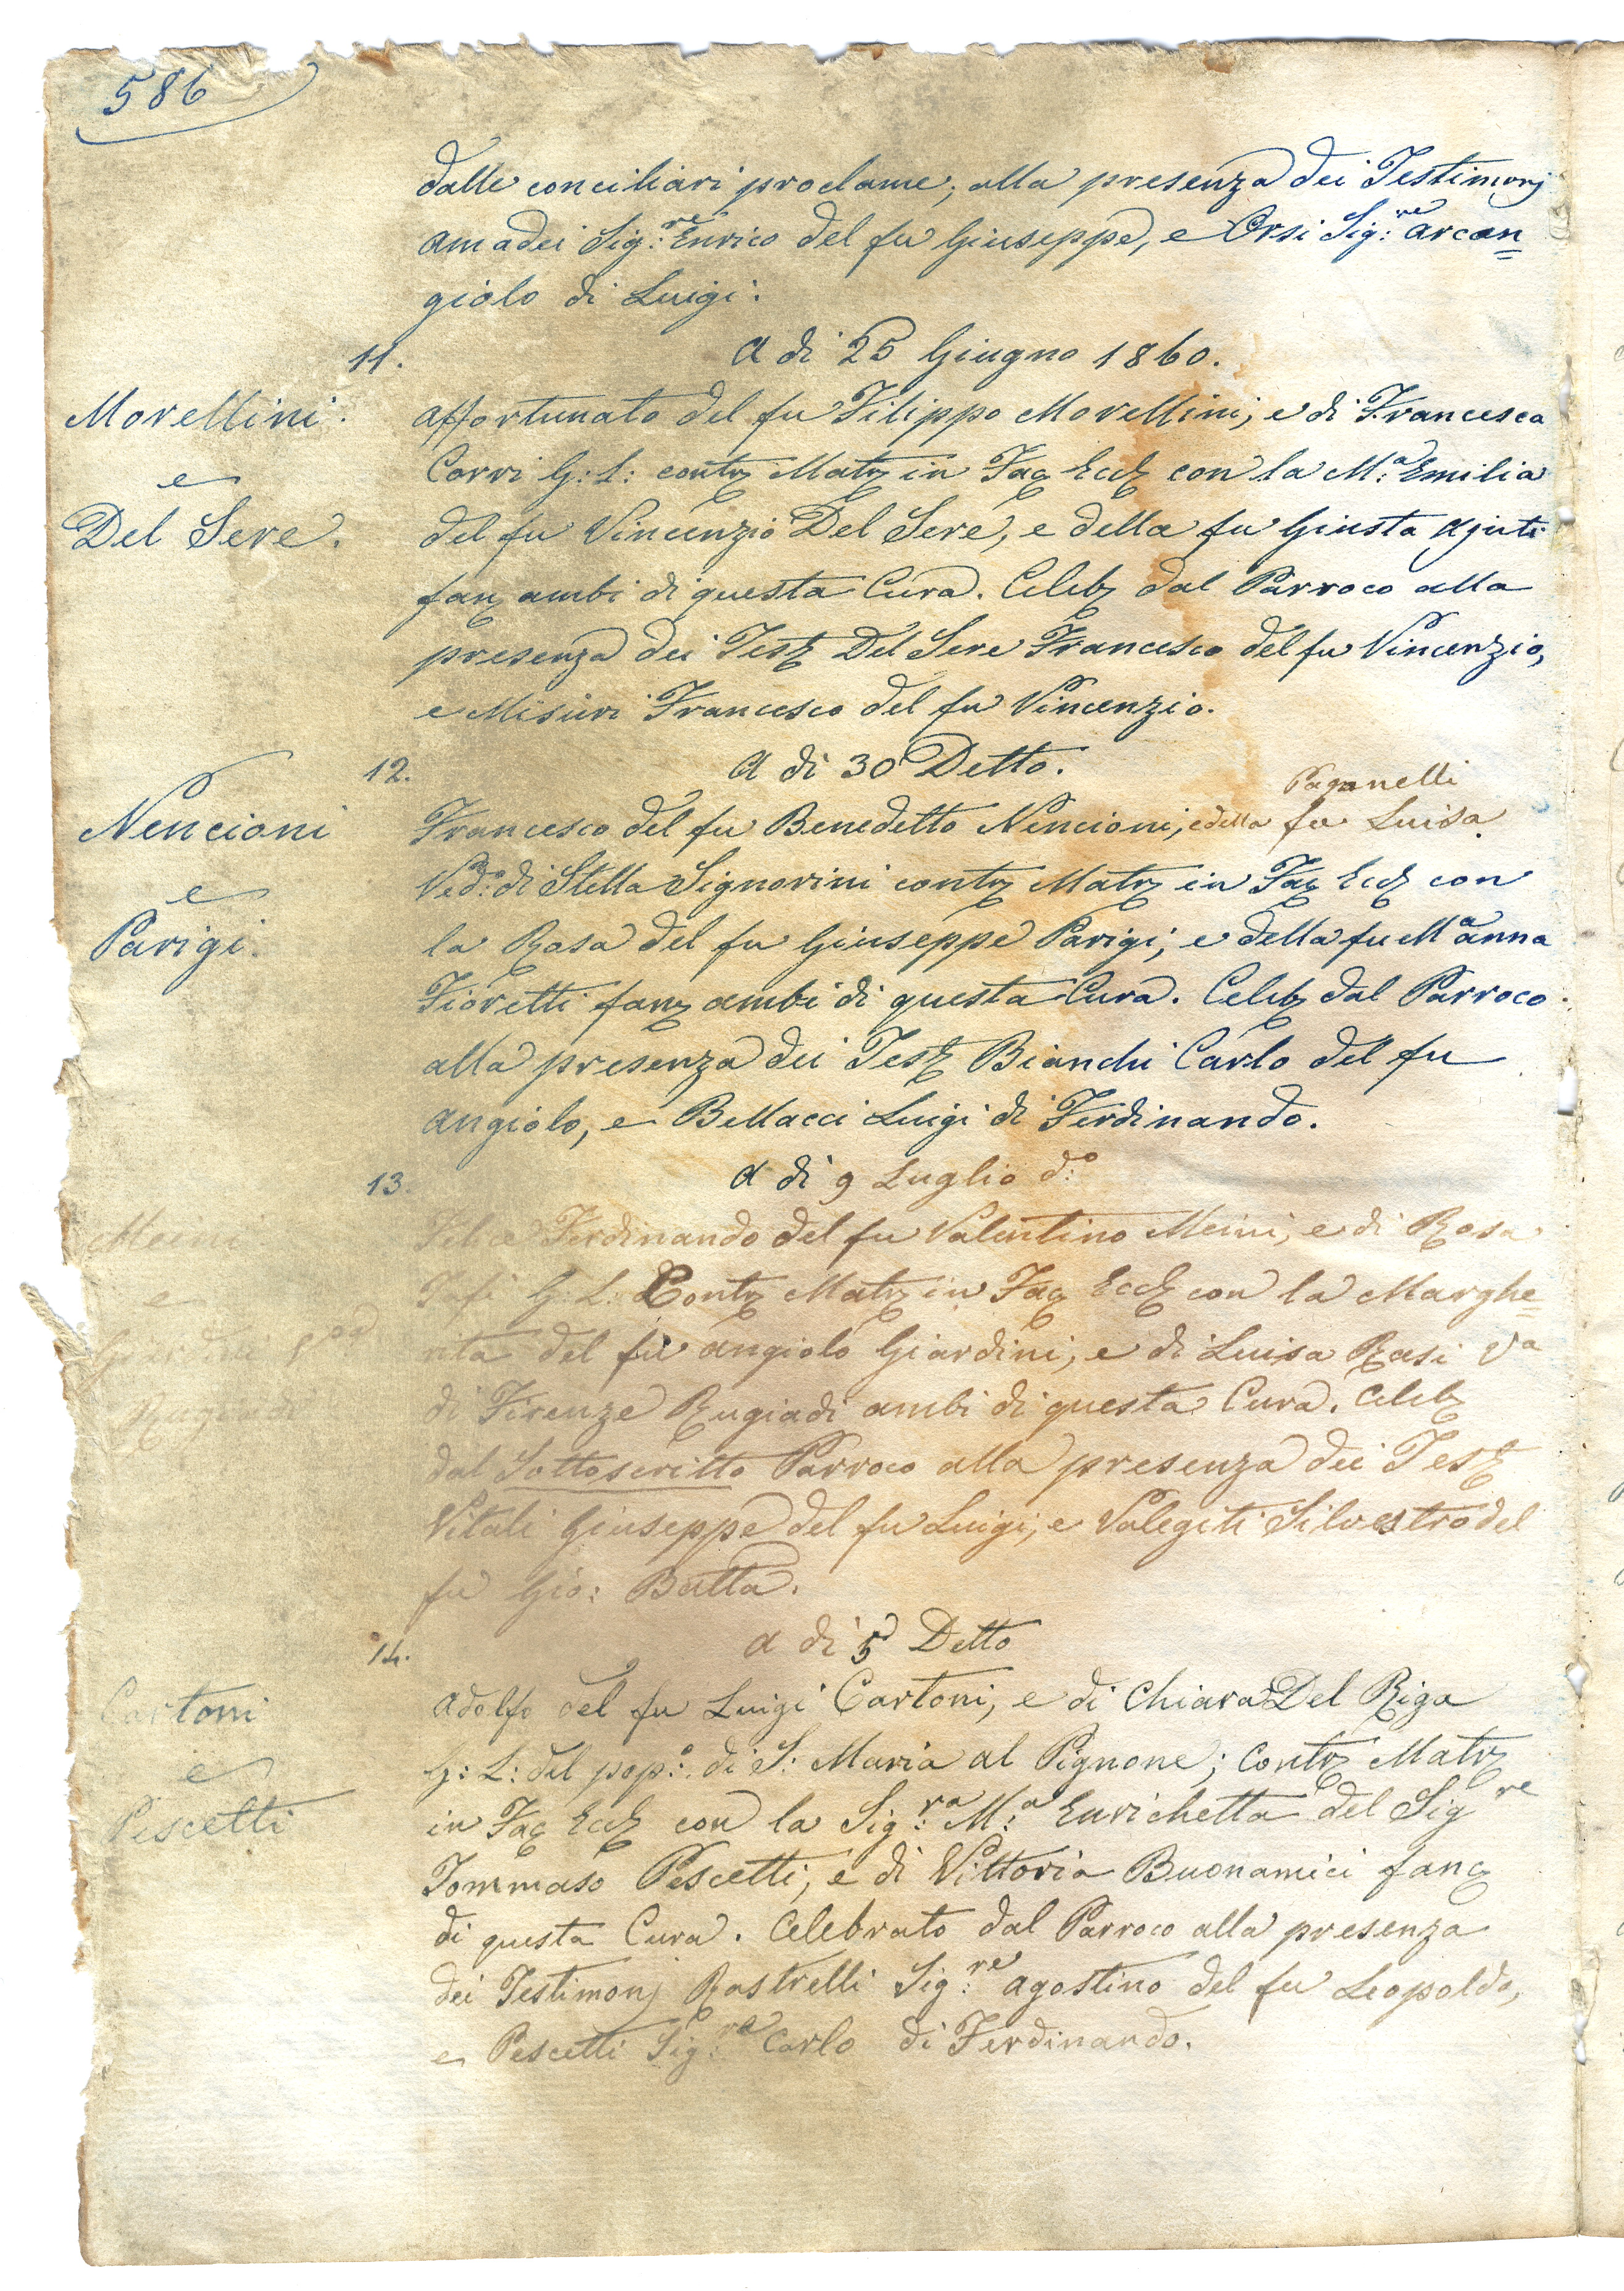 586
dalle conciliari proclame; alla presenza dei Testimonj
Amadei Sig:re Enrico del fu Giuseppe, e Orsi Sig:re Arcan=
giolo di Luigi.
11. A di 25 Giugno 1860.
Morellini.
e
Del Sere.
Affortunato del fu Filippo Morellini, e di Francesca
Corri G: L: contz Matz in Facz Eccz con la M:a Emilia
del fu Vincenzio Del Sere, e della fu Giusta
fanz ambi di questa Cura. Celebz dal Parroco alla
presenza dei Testz Del Sere Francesco del fu Vincenzio,
e Misuri Francesco del fu Vincenzio.
12. A di 30 Detto.
Nencioni
e
Parigi.
Paganelli
Francesco del fu Benedetto Nencioni, e della fu Luisa
Ved:o di Stella Signorini contz Matz in Facz Eccz con
la Rosa del fu Giuseppe Parigi, e della fu Ma Anna
Fioretti fanz ambi di questa Cura. Celebz dal Parroco
alla presenza dei Testz Bianchi Carlo del fu
Angiolo, e Bellacci Luigi di Ferdinando.
13. A di 9 Luglio d:o
Meini
e
Giardini
Rugiadi
Felice Ferdinando del fu Valentino Meini, e di Rosa
G: L: Contz Matz in Facz Eccz con la Marghe=
rita del fu Angiolo Giardini, e di Luisa Rasi Va
di Firenze Rugiadi ambi di questa Cura. Celebz
dal Sottoscritto Parroco alla presenza dei Testz
Vitali Giuseppe del fu Luigi, e Valegiti Silvestro del
fu Gio: Batta.
14. A di 5 Detto
Cartoni
e
Pescetti
Adolfo del fu Luigi Cartoni, e di Chiara Del Riga
G: L: del pop:o di S: Maria al Pignone; Contz Matz
in Facz Eccz con la Sig:ra M:a Enrichetta del Sigre
Tommaso Pescetti, e di Vittoria Buonamici fancz
di questa Cura. Celebrato dal Parroco alla presenza
dei Testimonj Rastrelli Sig:re Agostino del fu Leopoldo,
e Pescetti Sig:re Carlo di Ferdinando.